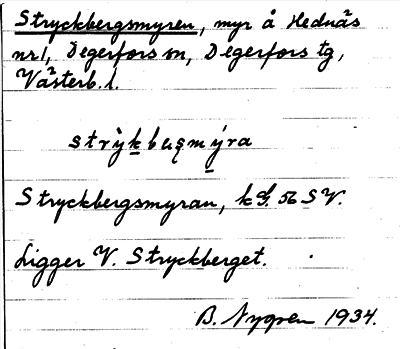 Stryckbergsmyren, myr å Hednäs
nr 1, Degerfors sn, Degerfors tg,
Västerb. l.
Stryckbergsmyran, kbl. 56 SV.
Ligger V. Stryckberget.
B. Nygren 1934.